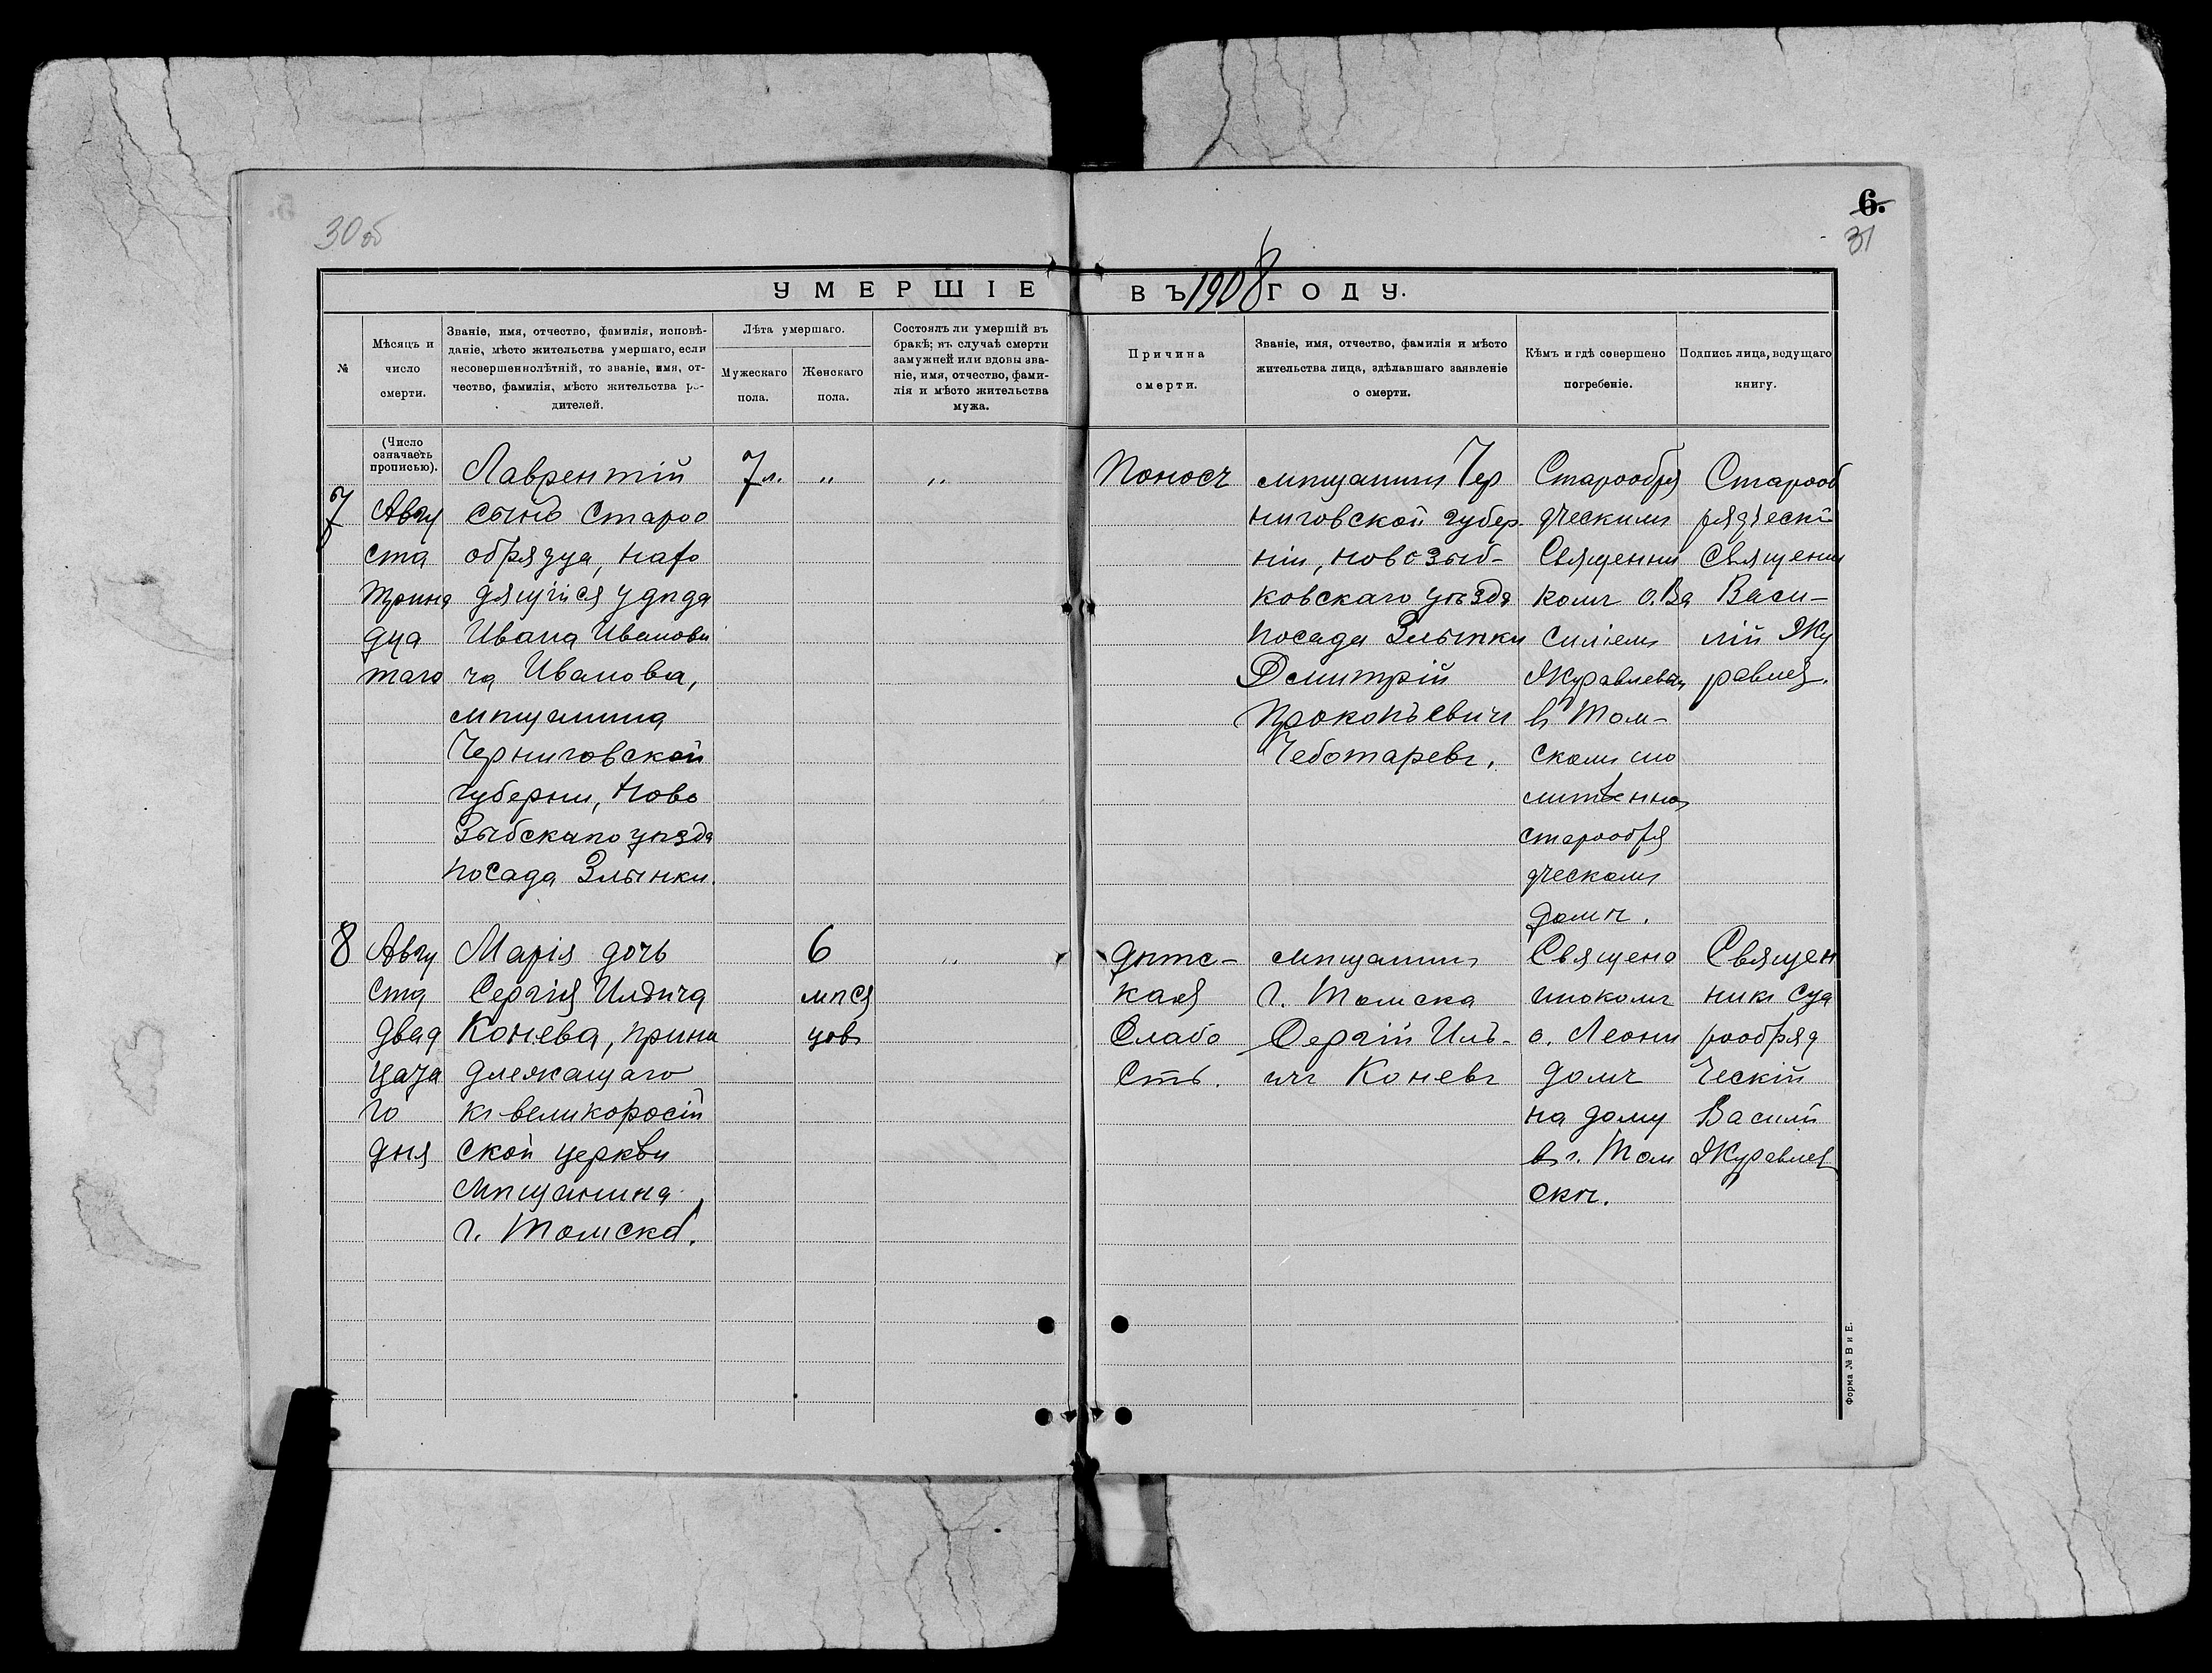 30 об
6.
31
УМЕРШІЕ ВЪ 1908 ГОДУ.
№
Мѣсяцъ и
число
смерти.
Званіе, имя, отчество, фамилія, исповѣ-
даніе, мѣсто жительства умершаго, если
несовершеннолѣтній, то званіе, имя, от-
чество, фамилія, мѣсто жительства ро-
дителей.
Лѣта умершаго.
Мужескаго
пола.
Женскаго
пола.
Состоялъ ли умершій въ
бракѣ; въ случаѣ смерти
замужней или вдовы зва-
ніе, имя, отчество, фами-
лія и мѣсто жительства
мужа.
Причина
смерти.
Званіе, имя, отчество, фамилія и мѣсто
жительства лица, здѣлавшаго заявленіе
о смерти.
Кѣмъ и гдѣ совершено
погребеніе.
Подпись лица, ведущаго
книгу.
(Число
означаетъ
прописью).
7
Авгу
ста
трина
дца
таго
Лаврентій
сынъ Старо
обрядца, нахо
дящійся у дѣда
Ивана Иванови
ча Иванова,
мѣщанина
Черниговской
губерни, Ново
Зыбскаго уѣзда
посада Злынки.
7 л.
„
„
Поносъ
мѣщанинъ Чер
ниговской губер-
ніи, новозыб-
ковскаго уѣзда
посада Злынки
Дмитрій
Прокопьевичъ
Чеботаревъ.
Старообря
дческимъ
Священни
комъ о. Ва
силіемъ
Журавлевым
въ Том-
скомъ мо
литвенно
старообря
дческомъ
домѣ.
Старооб
рядческі
Священи
Васи-
лій Жу
равлев.
8
Авгу
ста
двад
цата
го
дня
Марія дочь
Сергія Ильича
Конева, прина
длежащаго
къ великоросій
ской церкви
мѣщанина
г. Томска.
6
мѣся
цовъ
„
дѣтс-
кая
Слабо
сть.
мѣщанинъ
г. Томска
Сергій Иль-
ичъ Коневъ
Священо
инокомъ
о. Леони
домъ
на дому
въ г. Том
скѣ.
Священ
никъ Ста
рообряд
ческій
Василій
Журавлев
Форма № В и Е.